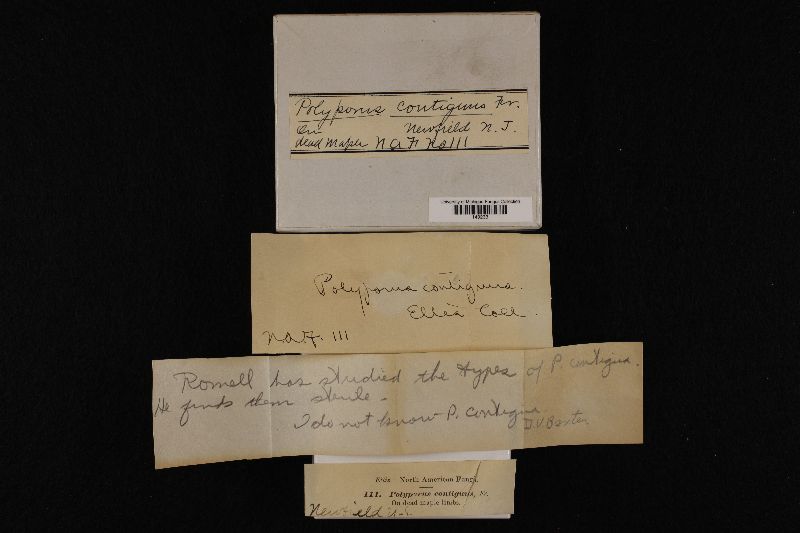 Polyporus contiguus Fr.
On Newfield N. J.
dead Maple N A F No 111
University of Michigan Fungus Collection
Polyporus contiguus.
Ellis Coll.
N.A.F. 111
Romell has studied the types of P. contigua.
He finds them sterile.
I do not know P. contigua
D.V. Baxter
Ellis North American Fungi.
111. Polyporus contiguus, Fr.
On dead maple limbs.
Newfield N.J.